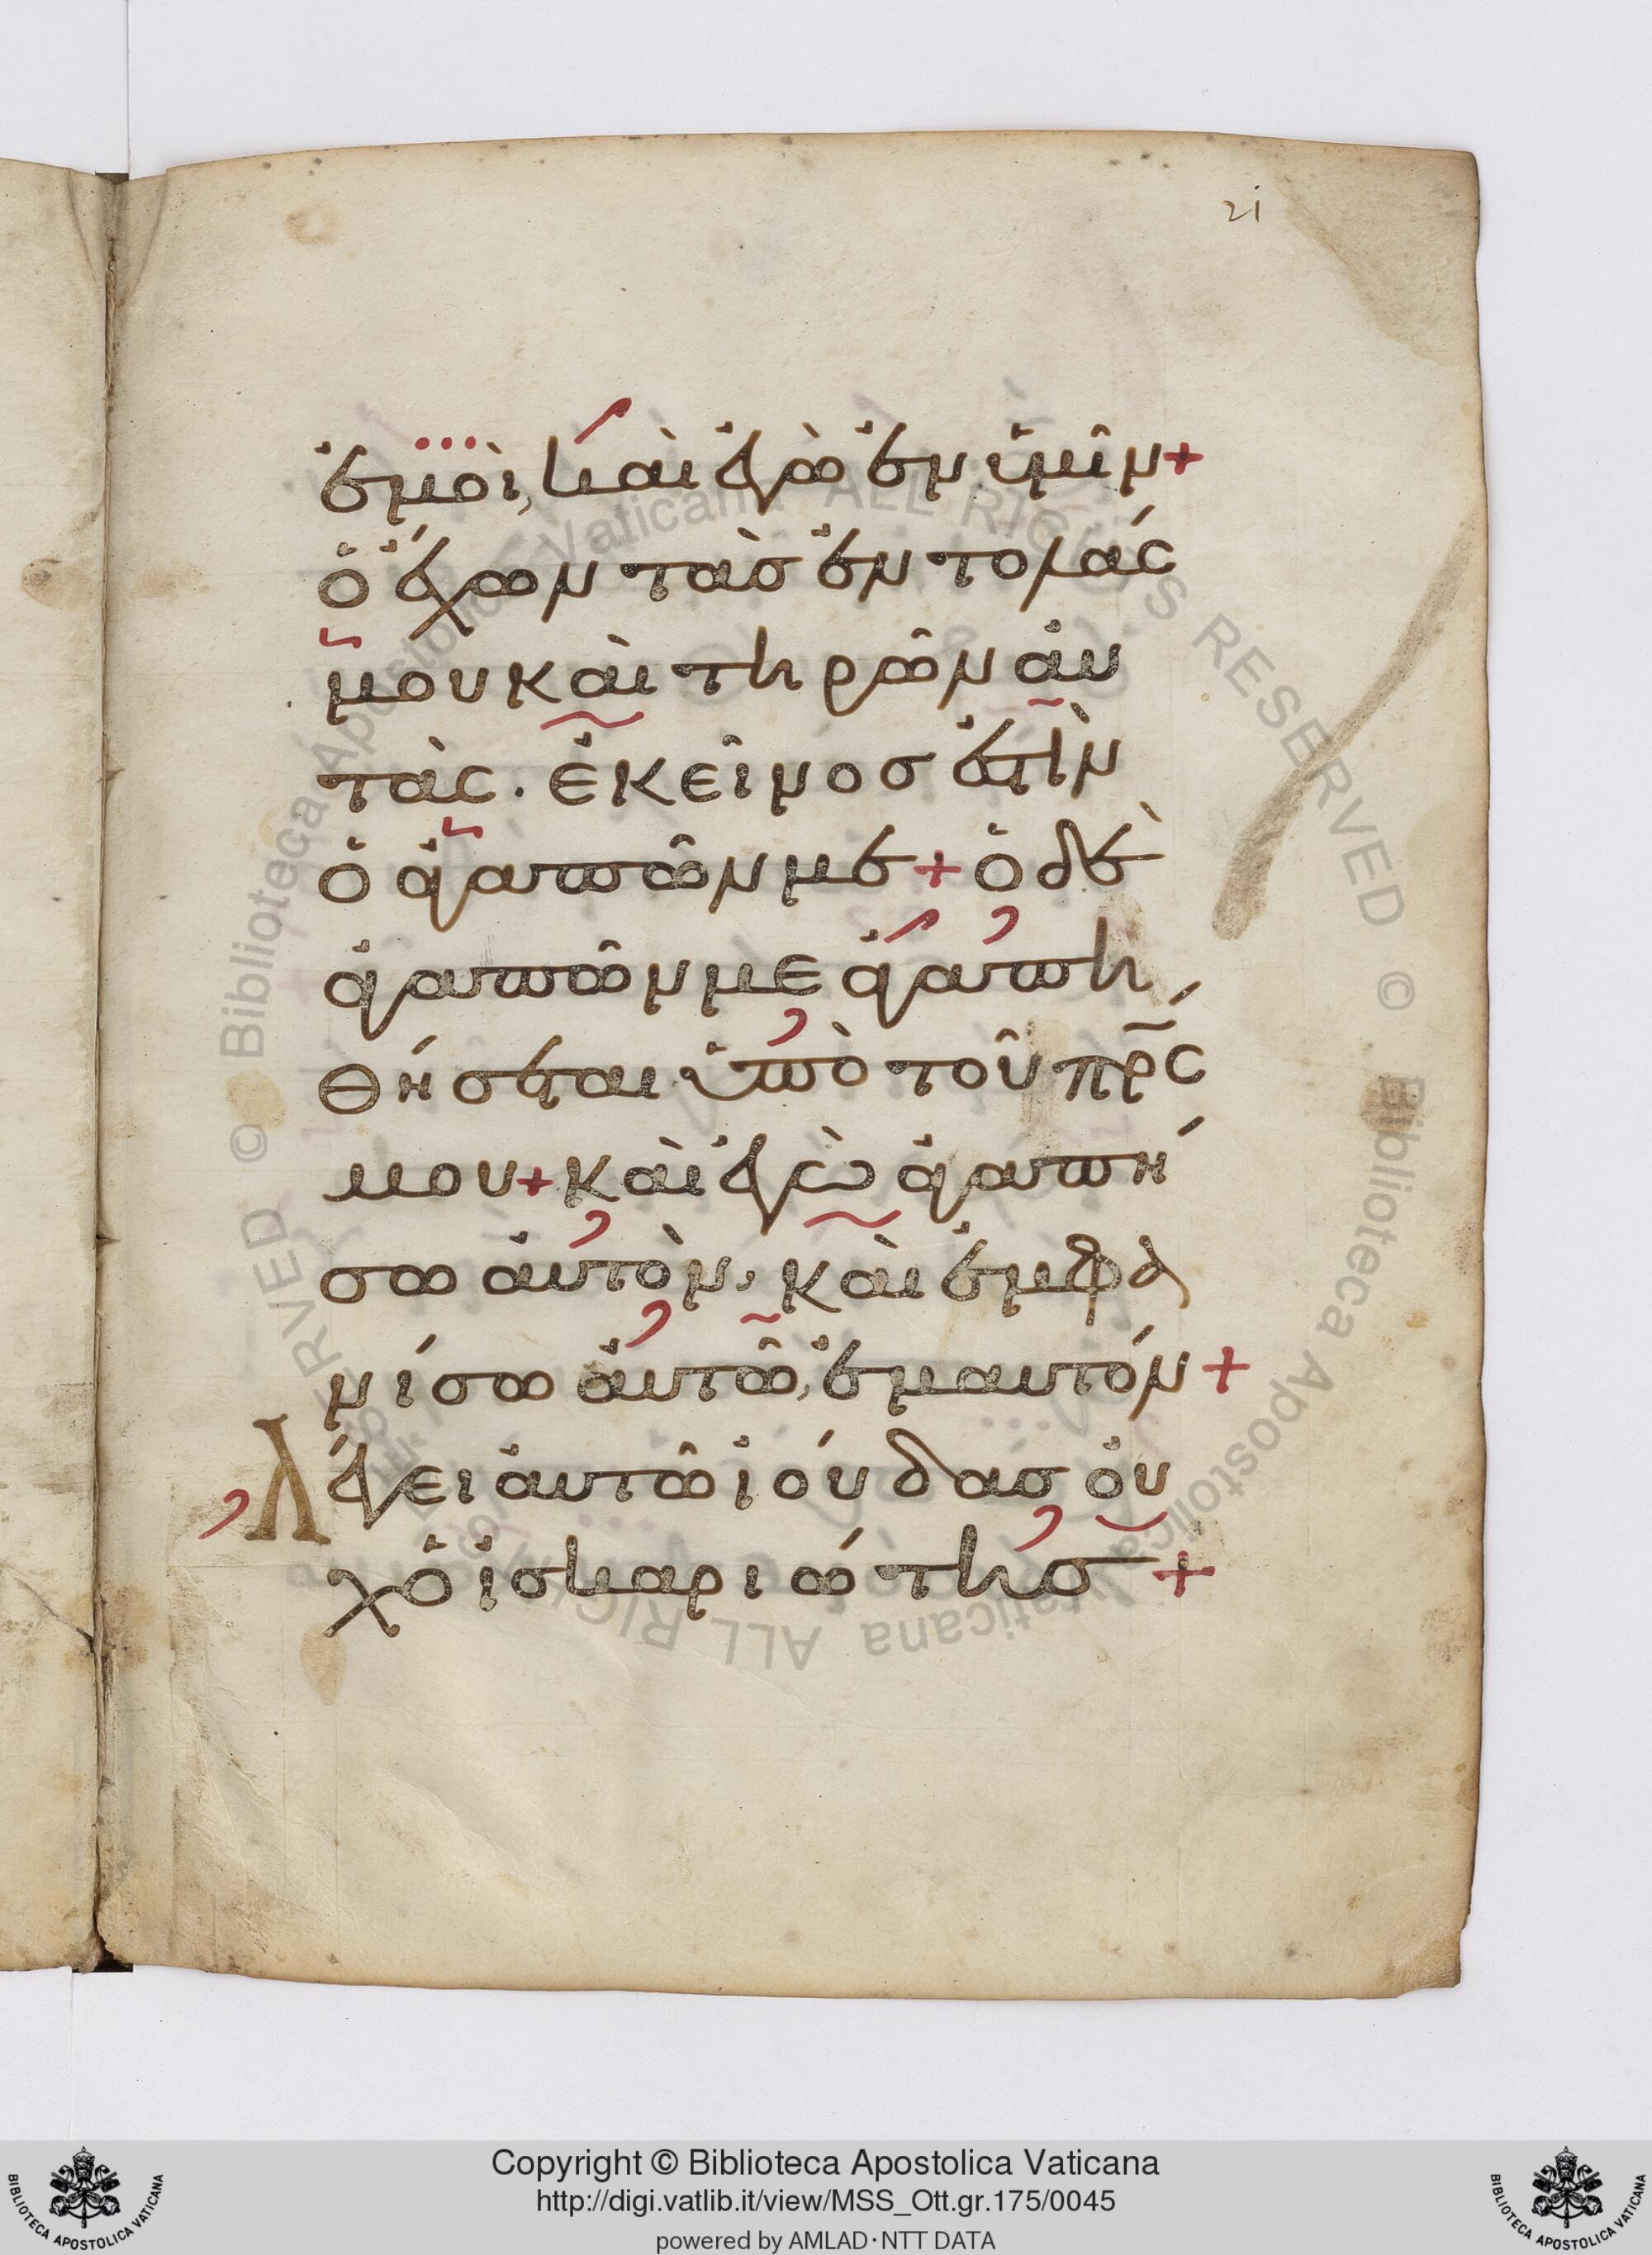 21
ἐμοὶ, καὶ ἐγὼ ἐν ὑμῖν+
ὁ ἔχων τὰσ ἐντολάς
μου καὶ τηρῶν ἀυ
τὰς. ἐκεῖνοσ ἐστὶν
ὁ ἀγαπῶν με+ ὁ δὲ
ἀγαπῶν με ἀγαπη
θήσεται ὑπὸ τοῦ πρ̅ς
μου+ καὶ ἐγὼ ἀγαπή
σω ἀυτὸν, καὶ ἐμφα
νίσω ἀυτῶ, ἐμαυτόν+
Λέγει ἀυτῶ ἰούδασ ὀυ
χ ὁ ἰσκαριώτησ+
© Biblioteca Apostolica Vaticana ALL RIGHTS RESERVED © Biblioteca Apostolica Vaticana ALL RIGHTS RESERVED
Copyright © Biblioteca Apostolica Vaticana
http://digi.vatlib.it/view/MSS_Ott.gr.175/0045
powered by AMLAD·NTT DATA
BIBLIOTECA APOSTOLICA VATICANA
BIBLIOTECA APOSTOLICA VATICANA